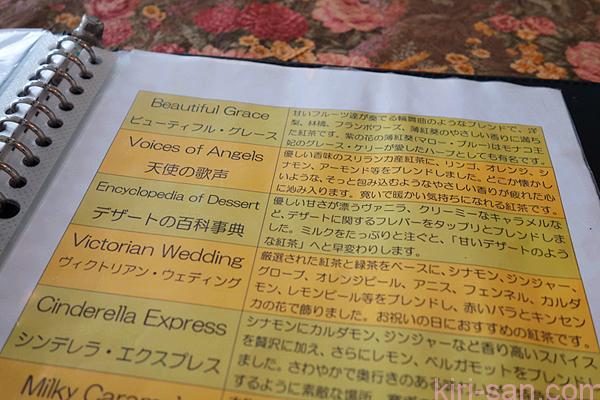 Beautiful Grace
ビューティフル・グレース
甘いフルーツ達が奏でる輪舞曲のようなブレンドで、洋
梨、林檎、フランボワーズ、薄紅葵のやさしい香りに満ち
た紅茶です。紫の花の薄紅葵(マロー・ブルー)はモナコ王
妃のグレース・ケリーが愛したハーブとしても有名です。
Voices of Angels
天使の歌声
優しい香味のスリランカ産紅茶に、リンゴ、オレンジ、シ
ナモン、アーモンド等をブレンドしました。どこか懐かし
いような、そっと包み込むようなやさしい香りが疲れた心
に沁み入ります。寛いで暖かい気持ちになれる紅茶です。
Encyclopedia of Dessert
デザートの百科事典
優しい甘さが漂うヴァニラ、クリーミーなキャラメルな
ど、デザートに関するフレバーをタップリとブレンドしま
した。ミルクをたっぷりと注ぐと、「甘いデザートのよう
な紅茶」へと早変わりします。
Victorian Wedding
ヴィクトリアン・ウェディング
厳選された紅茶と緑茶をベースに、シナモン、ジンジャー、
グローブ、オレンジピール、アニス、フェンネル、カルダ
モン、レモンピール等をブレンドし、赤いバラとキンセン
カの花で飾りました。お祝いの日におすすめの紅茶です。
Cinderella Express
シンデレラ・エクスプレス
シナモンにカルダモン、ジンジャーなど香り高いスパイス
を贅沢に加え、さらにレモン、ベルガモットをブレンドし
ました。さわやかで奥行きのある
するように素敵な場所、
Milky Caramel
kiri-san.com